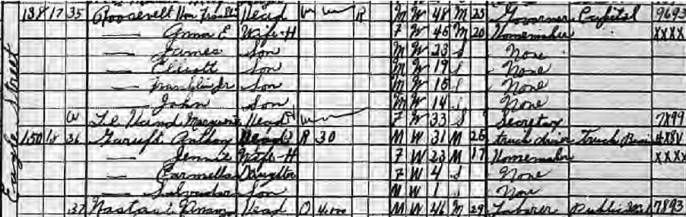 Eagle Street
138 17 35 Roosevelt Hon Franklin Head R M W 48 M 23 Governor Capitol 9693
— Anna E Wife-H F W 45 M 20 Homemaker XXXX
— James Son M W 23 S None
— Elliott Son M W 19 S None
— Franklin Jr Son M W 15 S None
— John Son M W 14 S None
Le Hand Marguerite Head F W 33 S Secretary 7899
150 18 36 Anthony Head R 30 M W 31 M 26 Truck driver Truck
— Jennie Wife-H F W 23 M 17 Homemaker XXXX
— Carmella Daughter F W 4 S None
— Salvador Son M W 1 S None
37 Head O M W 46 M 29 Laborer Public 7893